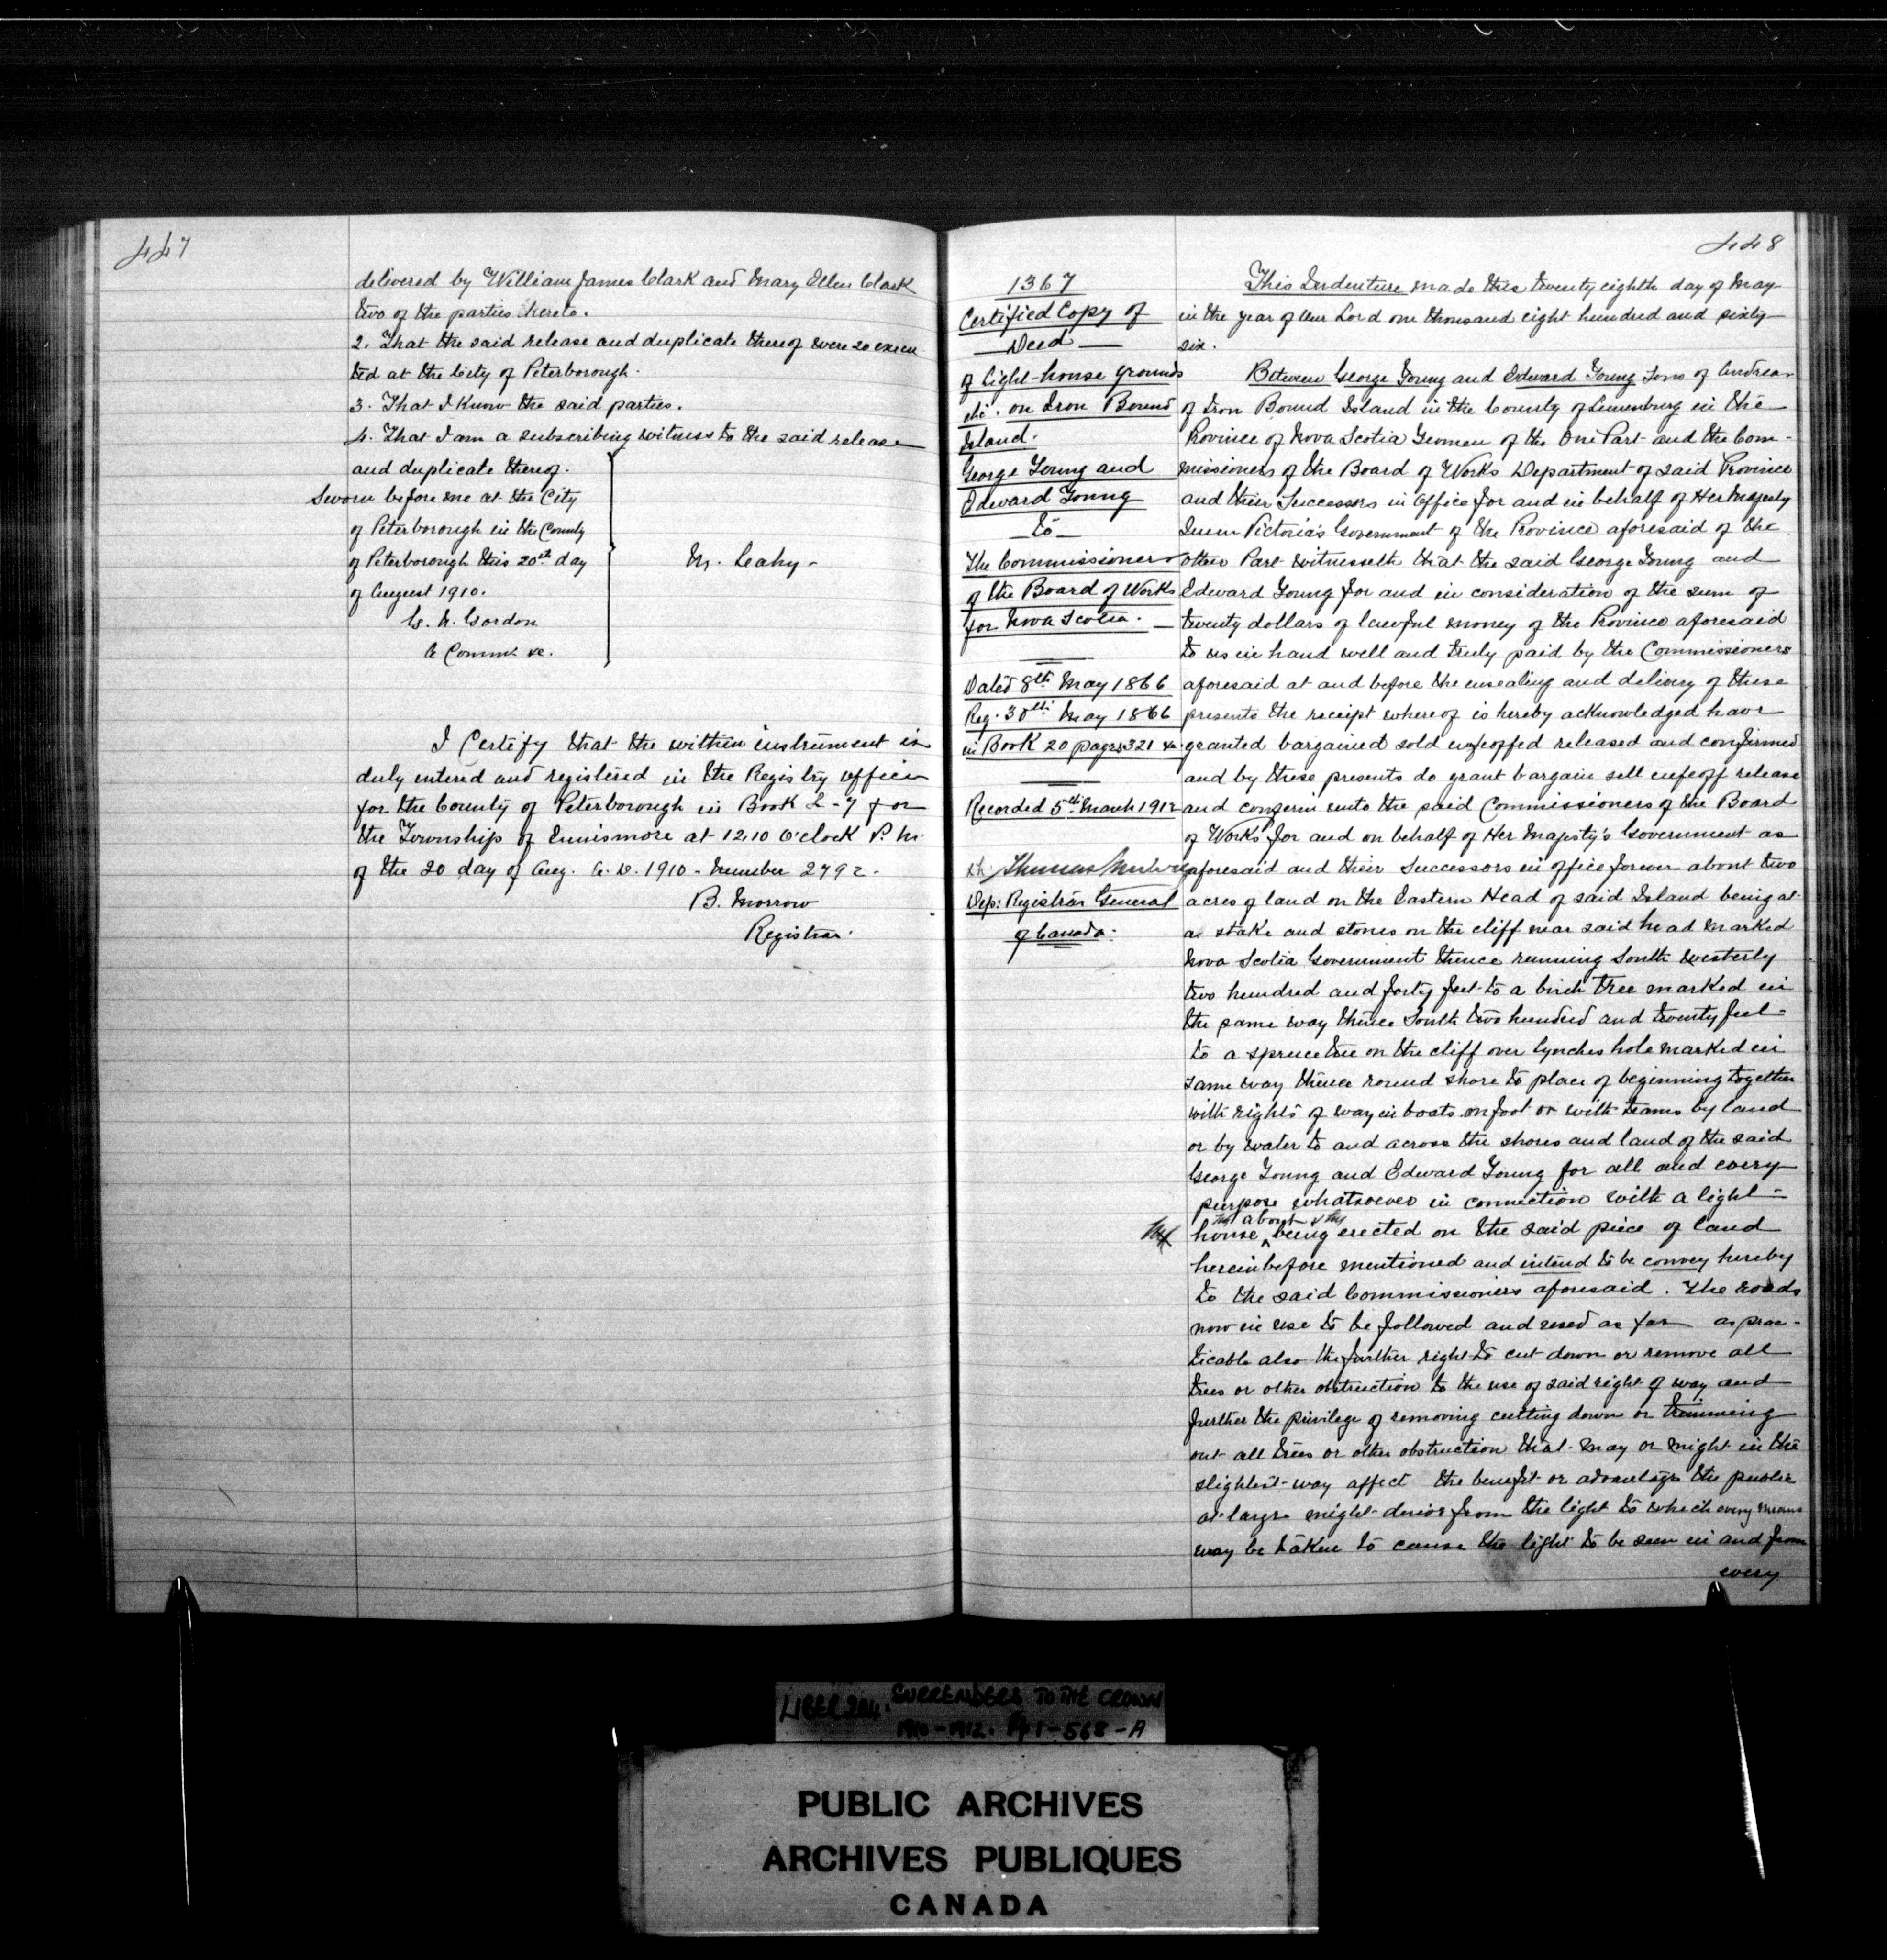 447
delivered by William James Clark and Mary Ellen Clark
two of the parties hereto.
2. That the said release and duplicate thereof were so execu
ted at the City of Peterborough.
3. That I know the said parties.
4. That I am a subscribing witness to the said release
and duplicate thereof.
Sworn before me at the City
of Peterborough in the County
of Peterborough this 20th day
of August 1910.
G. N. Gordon
A Commr &c.
M. Leahy.
I Certify that the within instrument is
duly entered and registered in the Registry office
for the County of Peterborough in Book 2-7 for
the Township of Ennismore at 12.10 O'clock P. M.
of the 20 day of Aug. A.D. 1910 - Number 2792.
B. Morrow
Registrar.
448
1367
Certified Copy of
Deed
of Light-house grounds
etc. on Iron Bound
Island.
George Young and
Edward Young
to
The Commissioners
of the Board of Works
for Nova Scotia.
Dated 8th May 1866
Reg. 30th May 1866
in Book 20 pages 321 &c.
Recorded 5th March 1912
Thomas
Dep: Registrar General
of Canada.
This Indenture made this twenty eighth day of May
in the year of Our Lord one thousand eight hundred and sixty
six.
Between George Young and Edward Young Sons of Andrew
of Iron Bound Island in the County of Lunenburg in the
Province of Nova Scotia Yeomen of the One Part and the Com-
missioners of the Board of Works Department of said Province
and their Successors in Office for and in behalf of Her Majesty
Queen Victoria's Government of the Province aforesaid of the
other Part witnesseth that the said George Young and
Edward Young for and in consideration of the sum of
twenty dollars of lawful money of the Province aforesaid
to us in hand well and truly paid by the Commissioners
aforesaid at and before the ensealing and delivery of these
presents the receipt whereof is hereby acknowledged have
granted bargained sold enfeoffed released and confirmed
and by these presents do grant bargain sell enfeoff release
and confirm unto the said Commissioners of the Board
of Works for and on behalf of Her Majesty's Government as
aforesaid and their Successors in office forever about two
acres of land on the Eastern Head of said Island being at
a stake and stones on the cliff near said head marked
Nova Scotia Government thence running South westerly
two hundred and forty feet to a birch tree marked in
the same way thence South two hundred and twenty feet
to a spruce tree on the cliff over Lynches hole marked in
same way thence round shore to place of beginning together
with rights of way in boats on foot or with teams by land
or by water to and across the shores and land of the said
George Young and Edward Young for all and every
purpose whatsoever in connection with a light-
house about being erected on the said piece of land
hereinbefore mentioned and intend to be convey hereby
to the said Commissioners aforesaid. The roads
now in use to be followed and used as far as prac-
ticable also the further right to cut down or remove all
trees or other obstruction to the use of said right of way and
further the privilege of removing cutting down or trimming
out all trees or other obstruction that may or might in the
slightest way affect the benefit or advantage the public
at large might derive from the light to which every means
may be taken to cause the light to be seen in and from
every
LIBER 204. SURRENDERS TO THE CROWN
1910-1912. 1-568-A
PUBLIC ARCHIVES
ARCHIVES PUBLIQUES
CANADA